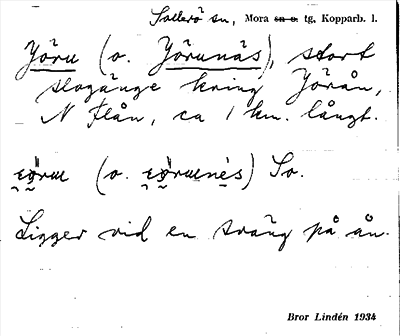 Sollerö sn, Mora sn o. tg, Kopparb. l.
Yöru (o. Yörunäs), stort
slogänge kring Yörån,
N Flån, ca 1 km. långt.
(o.                ) So.
Ligger vid en sväng på ån.
Bror Lindén 1934